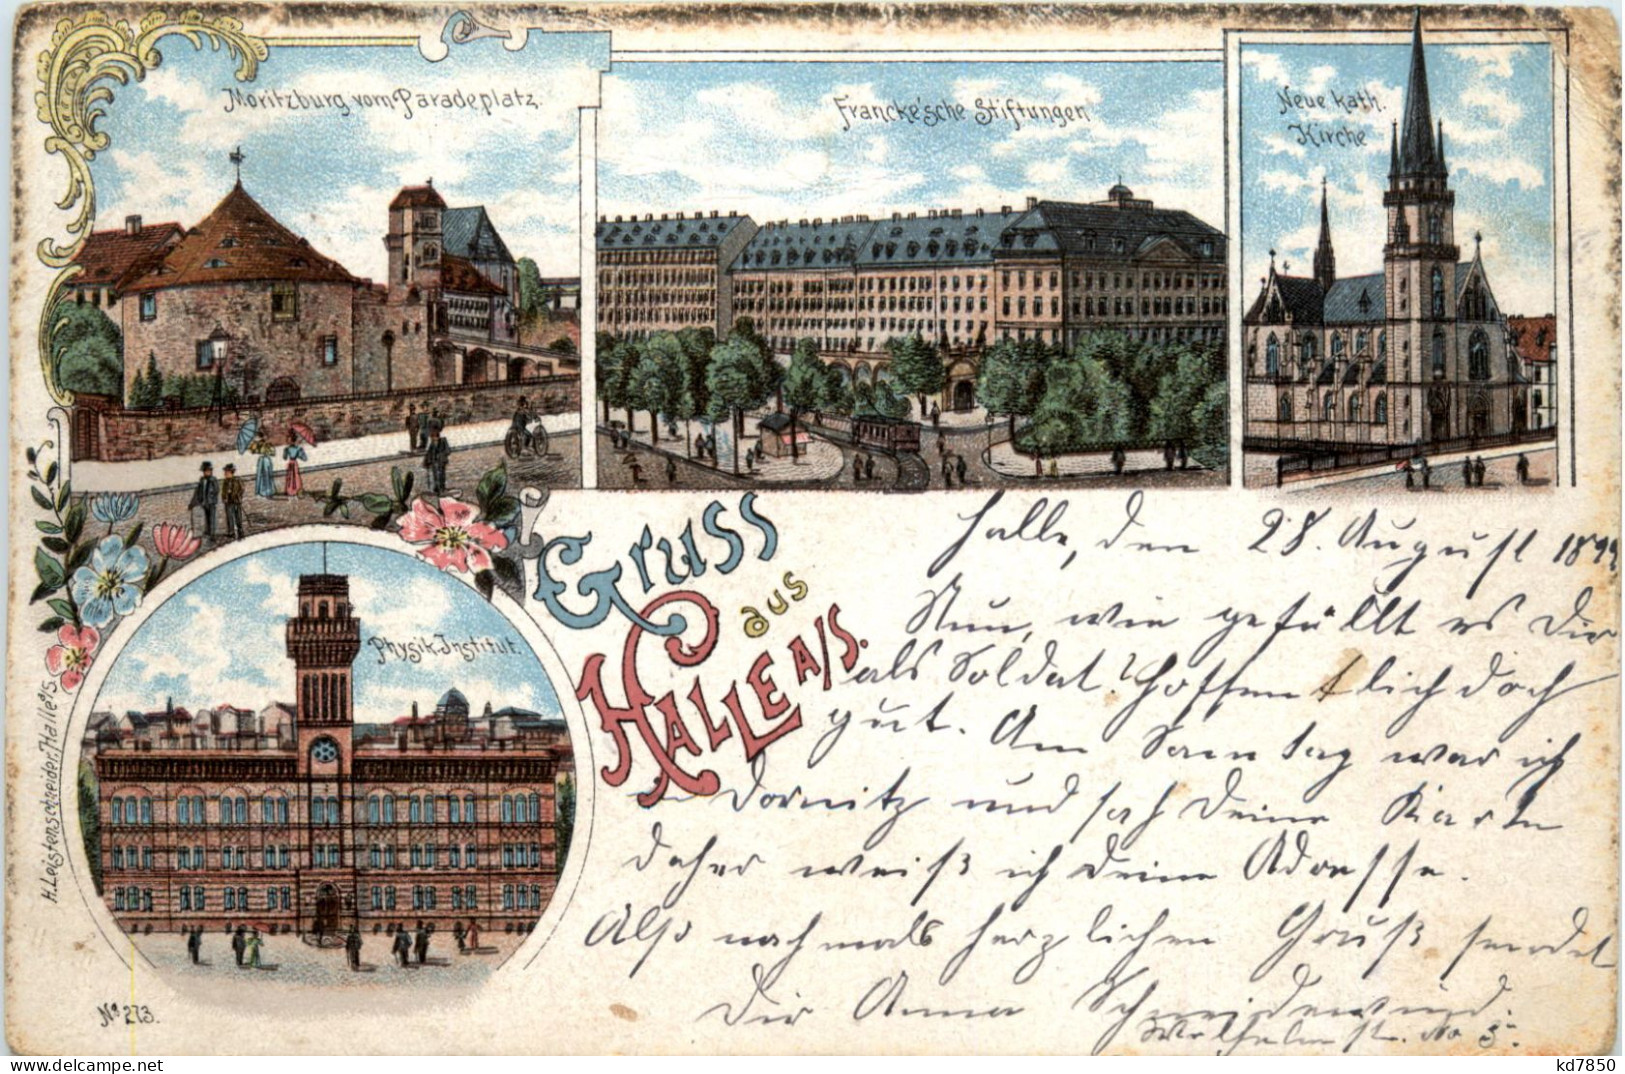 Moritzburg vom Paradeplatz.
Francke'sche Stiftungen
Neue kath.
Kirche
Physik. Institut.
Gruss
aus
HALLE A/S.
H. Leistenschneider, Halle a/S.
No 273.
Halle, den 28. August 1899
Nun, wie gefällt es Dir
als Soldat? Hoffentlich doch
gut. Am Sonntag war ich
in Dornitz und sah Deine Karte
daher weiß ich Deine Adresse.
Also nochmals herzlichen Gruß sendet
Dir Anna Schneidewind.
Wilhelm str. No 3.
kd7850